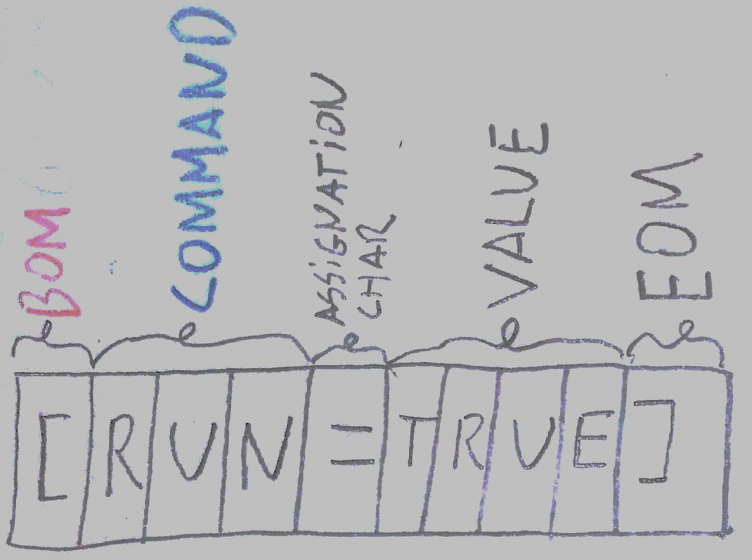 BOM
COMMAND
ASSIGNATION
CHAR
VALUE
EOM
[RUN=TRUE]